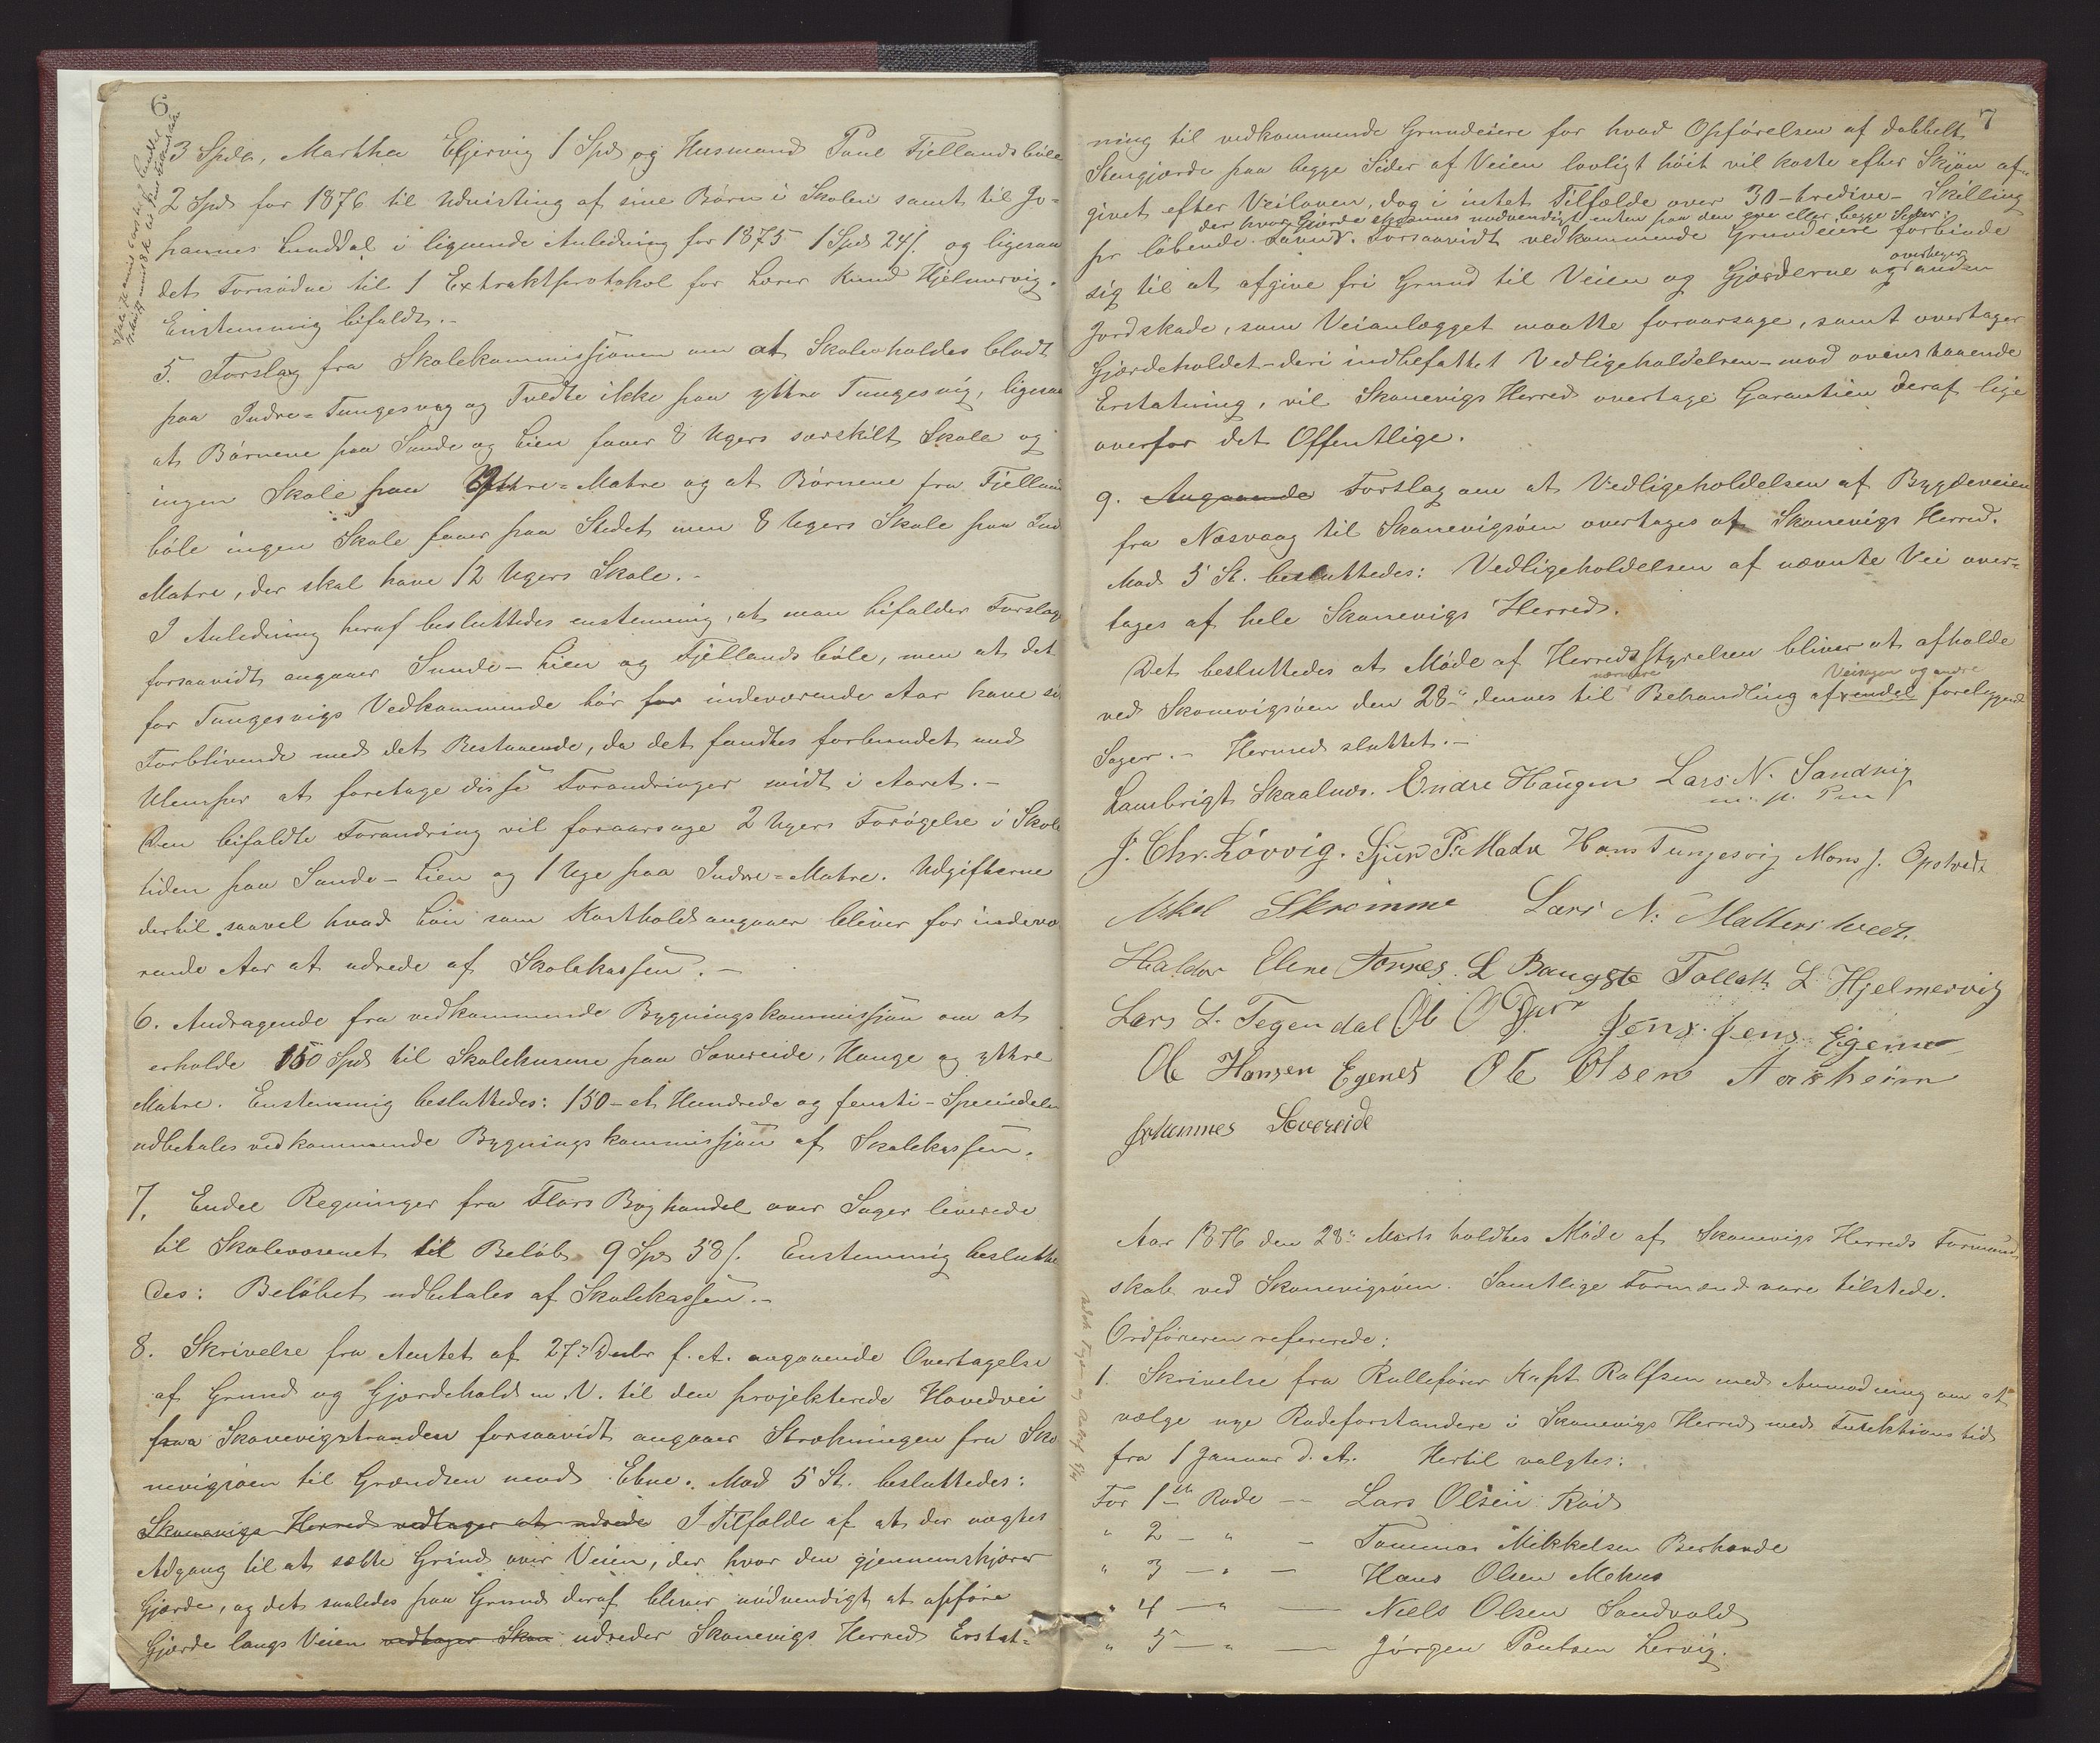 6
3 Spdlr, Martha Eljervig 1 Spd og Husmand Paul Fjellandsböle
2 Spd for 1876 til Udvisting af sine Börn i Skolen samt til Jo-
hannes Lunddal i lignende Anledning for 1875 1 Spd 24 s. og ligesaa
det Fornödne til 1 Extraktprotokol for Lærer Knud Hjelmervig.
Enstemmig bifaldt.-
5. Forslag fra Skolekommissjonen om at Skole holdes blodt
paa Indre-Tungesvig og Tvedte ikke paa ythre Tungesvig, ligesaa
at Börnene paa Sunde og Lien faaer 8 Ugers særskilt Skole og
ingen Skole paa Ythre-Matre og at Börnene fra Fjellands
böle ingen Skole faaer paa Stedet men 8 Ugers Skole paa Ind
Matre, der skal have 12 Ugers Skole.-
I Anledning heraf besluttedes enstemmig, at man bifalder Forslag
forsaavidt angaaer Sunde-Lien og Fjellandsböle, men at det
for Tungesvigs Vedkommende bör for indeværende Aar have sit
Forblivende med det Bestaaende, da det fandtes forbundet med
Ulemper at foretage disse Forandringer midt i Aaret.-
Den bifaldte Forandring vil foraarsage 2 Ugers Forögelse i Skole
tiden paa Sunde-Lien og 1 Uge paa Indre-Matre. Udgifterne
dertil saavel hvad Lön som Kosthold angaaer bliver for indevæ
rende Aar at udrede af Skolekassen.-
6. Andragende fra vedkommende Bygningskommissjon om at
erholde 150 Spd til Skolehusene paa Sævereide, Hauge og ythre
Matre. Enstemmig besluttedes: 150-et Hundrede og femti-Speciedaler
udbetales vedkommende Bygningskommissjon af Skolekassen.
7. Endel Regninger fra Flors Boghandel over Sager leverede
til Skolevæsenet til Belöb 9 Spd 58 s. Enstemmig beslutte
des: Belöbet udbetales af Skolekassen.-
8. Skrivelse fra Amtet af 27de Decbr f. A. angaaende Overtagelse
af Grund og Gjærdehold m. V. til den projekterede Hovedvei
fra Skonevigstranden forsaavidt angaaer Strekningen fra Sko
nevigsöen til Grændsen mod Ebne. Mod 5 St. besluttedes:
Skonevigs Herred vedtager at udrede I Tilfælde af at der nægtes
Adgang til at sætte Grind over Veien, der hvor den gjennemskjærer
Gjærde, og det saaledes paa Grund deraf bliver nödvendigt at opföre
Gjærde langs Veien vedtager Skon udreder Skonevigs Herred Erstat-
7
ning til vedkommende Grundeiere for hvad Opförelsen af dobbelt
Stengjærde paa begge Sider af Veien lovligt höit vil koste efter Skjön af-
givet efter Veiloven, dog i intet Tilfælde over 30-tredive-Skilling
der hvor Gjærde skjönnes nødvendigt enten paa den ene eller begge Sider
pr löbende Favn. Forsaavidt vedkommende Grundeiere forbinde
sig til at afgive fri Grund til Veien og Gjærderne og anden
overtager
Jordskade, som Veianlægget maatte foraarsage, samt overtager
Gjærdeholdet-deri indbefattet Vedligeholdelsen-mod ovenstaaende
Erstatning, vil Skonevigs Herred overtage Garantien deraf lige
overfor det Offentlige.
9. Angaaende Forslag om at Vedligeholdelsen af Bygdeveien
fra Næsvaag til Skonevigsöen overtages af Skonevigs Herred.
Mod 5 St. besluttedes: Vedligeholdelsen af nævnte Vei over-
tages af hele Skonevigs Herred.
Det besluttedes at Möde af Herredsstyrelsen bliver at afholde
nærmere Veisagen og andre
ved Skonevigsöen den 28de dennes til Behandling af endel foreliggende
Sager.- Hermed sluttet.-
Lambrigt Skaalnes. Endre Haugen Lars N. Sandvig
m. p. Pen
J. Chr. Lövvig. Sjur P. Matre Hans Tungesvig Mons J. Opstvedt
Askel Skromme Lars N. Malkenstvedt.
Haldor Ebne Tornes L Baugste Tollak L Hjelmervig
Lars L. Tegendal Ole O Jens Jens Eigenes
Ole Hansen Egenes Ole Olsen Aarheim
Johannes Sævereide
Aar 1876 den 28de Marts holdtes Möde af Skonevigs Herreds Formand
skab ved Skonevigsöen. Samtlige Formænd vare tilstede.
Ordföreren refererede:
1. Skrivelse fra Rulleförer Kapt Rolfsen med Anmodning om at
vælge nye Rodeforstandere i Skonevigs Herred med Funktionstid
fra 1 Januar d. A. Hertil valgtes:
For 1ste Rode -- Lars Olsen Röd
" 2 - " - Tommas Mikkelsen Berhovde
" 3 - " - Hans Olsen Mehus
" 4 - " - Niels Olsen Sandvold
" 5 - " - Jörgen Poulsen Lervig.